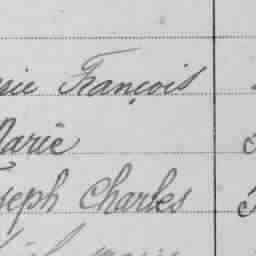 rie François
Marie
seph Charles